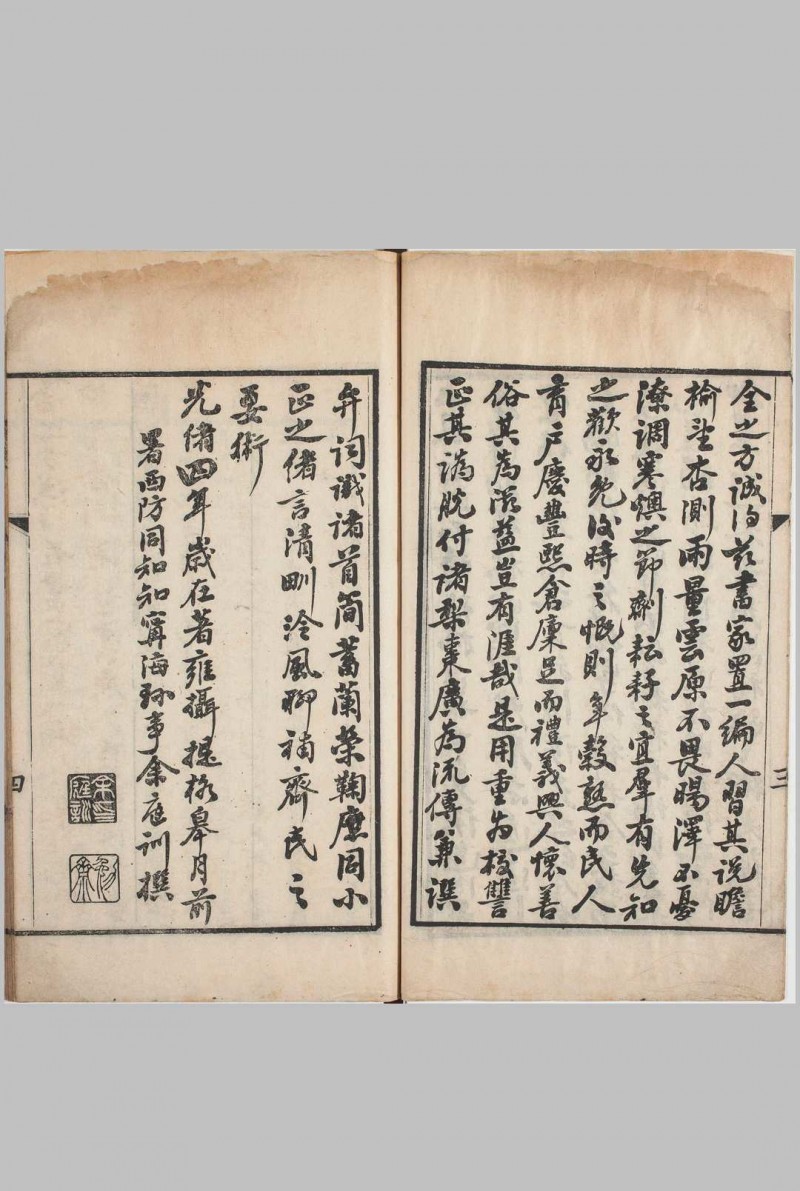 全之方誠得玆書家置一編人習其說瞻
榆望杏測雨量雲原不畏暘澤不憂
潦調寒燠之節劑耘耔之宜羣有先知
之歡永免後時之慨則年穀熟而民人
育戶慶豐熙倉廩足而禮義興人懷善
俗其為濟益豈有涯哉是用重為校讐
正其譌脫付諸梨棗廣為流傳兼譔
弁詞識諸首簡蓄蘭榮鞠麽同小
正之緒言清甽泠風聊補齊民之
要術
光緒四年歲在著雍攝提格皋月前
署西防同知知寧海縣事余庭訓撰
三
四
余印庭訓